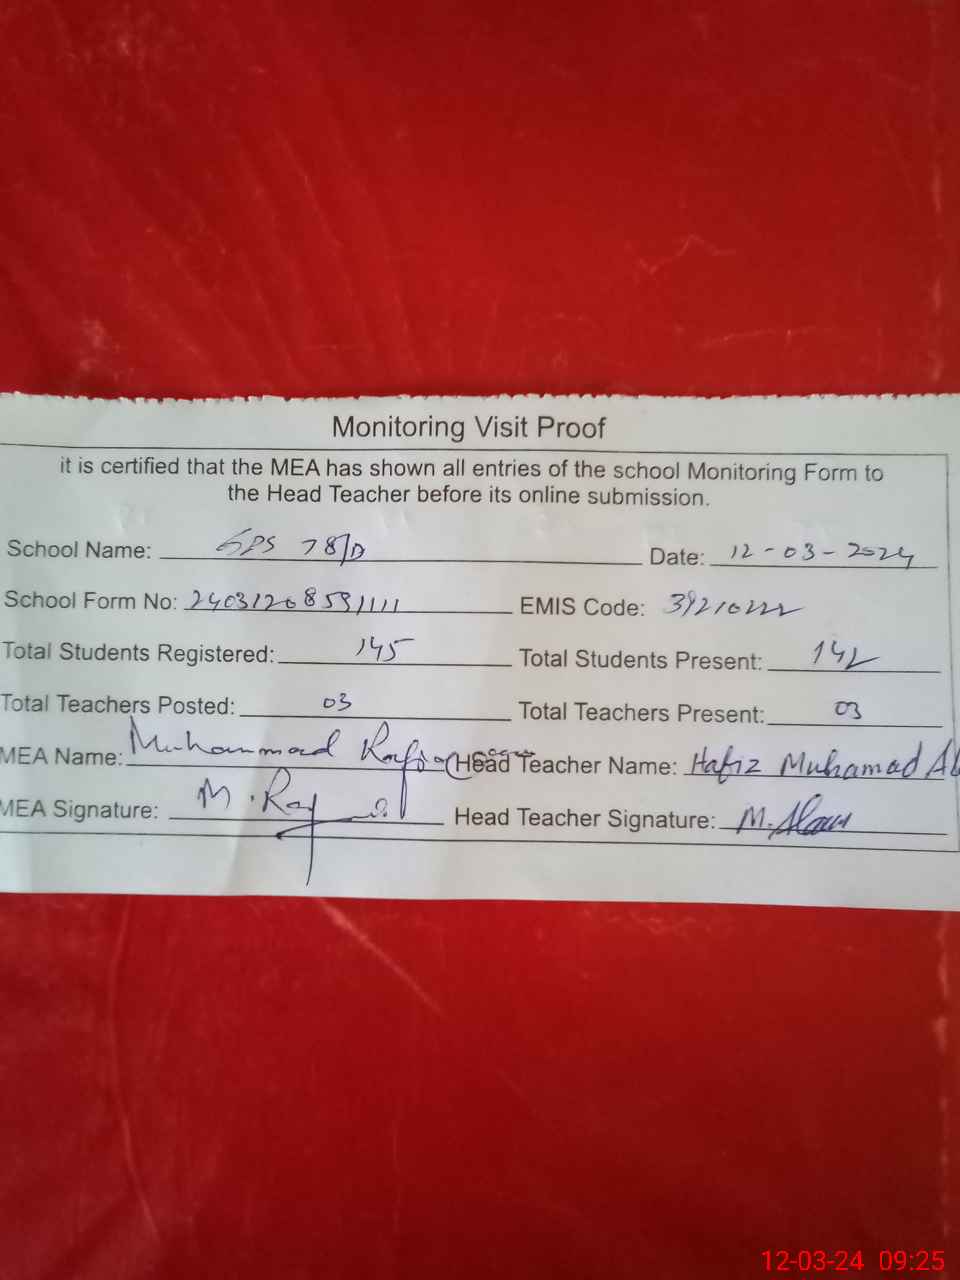 Monitoring Visit Proof
it is certified that the MEA has shown all entries of the school Monitoring Form to
the Head Teacher before its online submission.
School Name: GPS 78/D Date: 12-03-2024
School Form No: EMIS Code: 39210222
Total Students Registered: 145 Total Students Present: 142
Total Teachers Posted: 03 Total Teachers Present: 03
MEA Name: Muhammad Head Teacher Name: Hafiz Muhamad
MEA Signature: Head Teacher Signature:
12-03-24 09:25